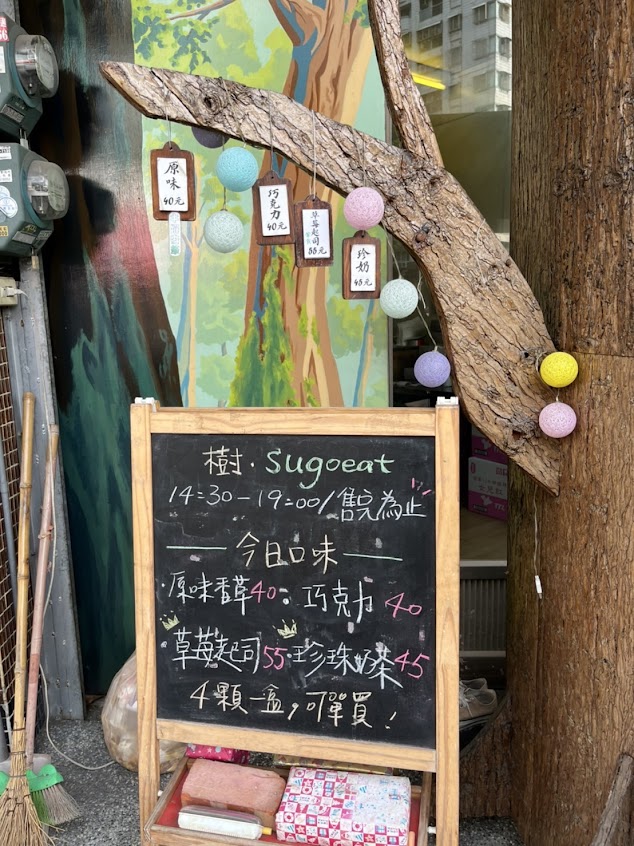 原味
40元
巧克力
40元
草莓起司
55元
珍奶
45元
樹·Sugoeat
14:30-19:00/售完為止
今日口味
原味香草40。巧克力40
草莓起司55·珍珠奶茶45
4顆一盒,可單買!